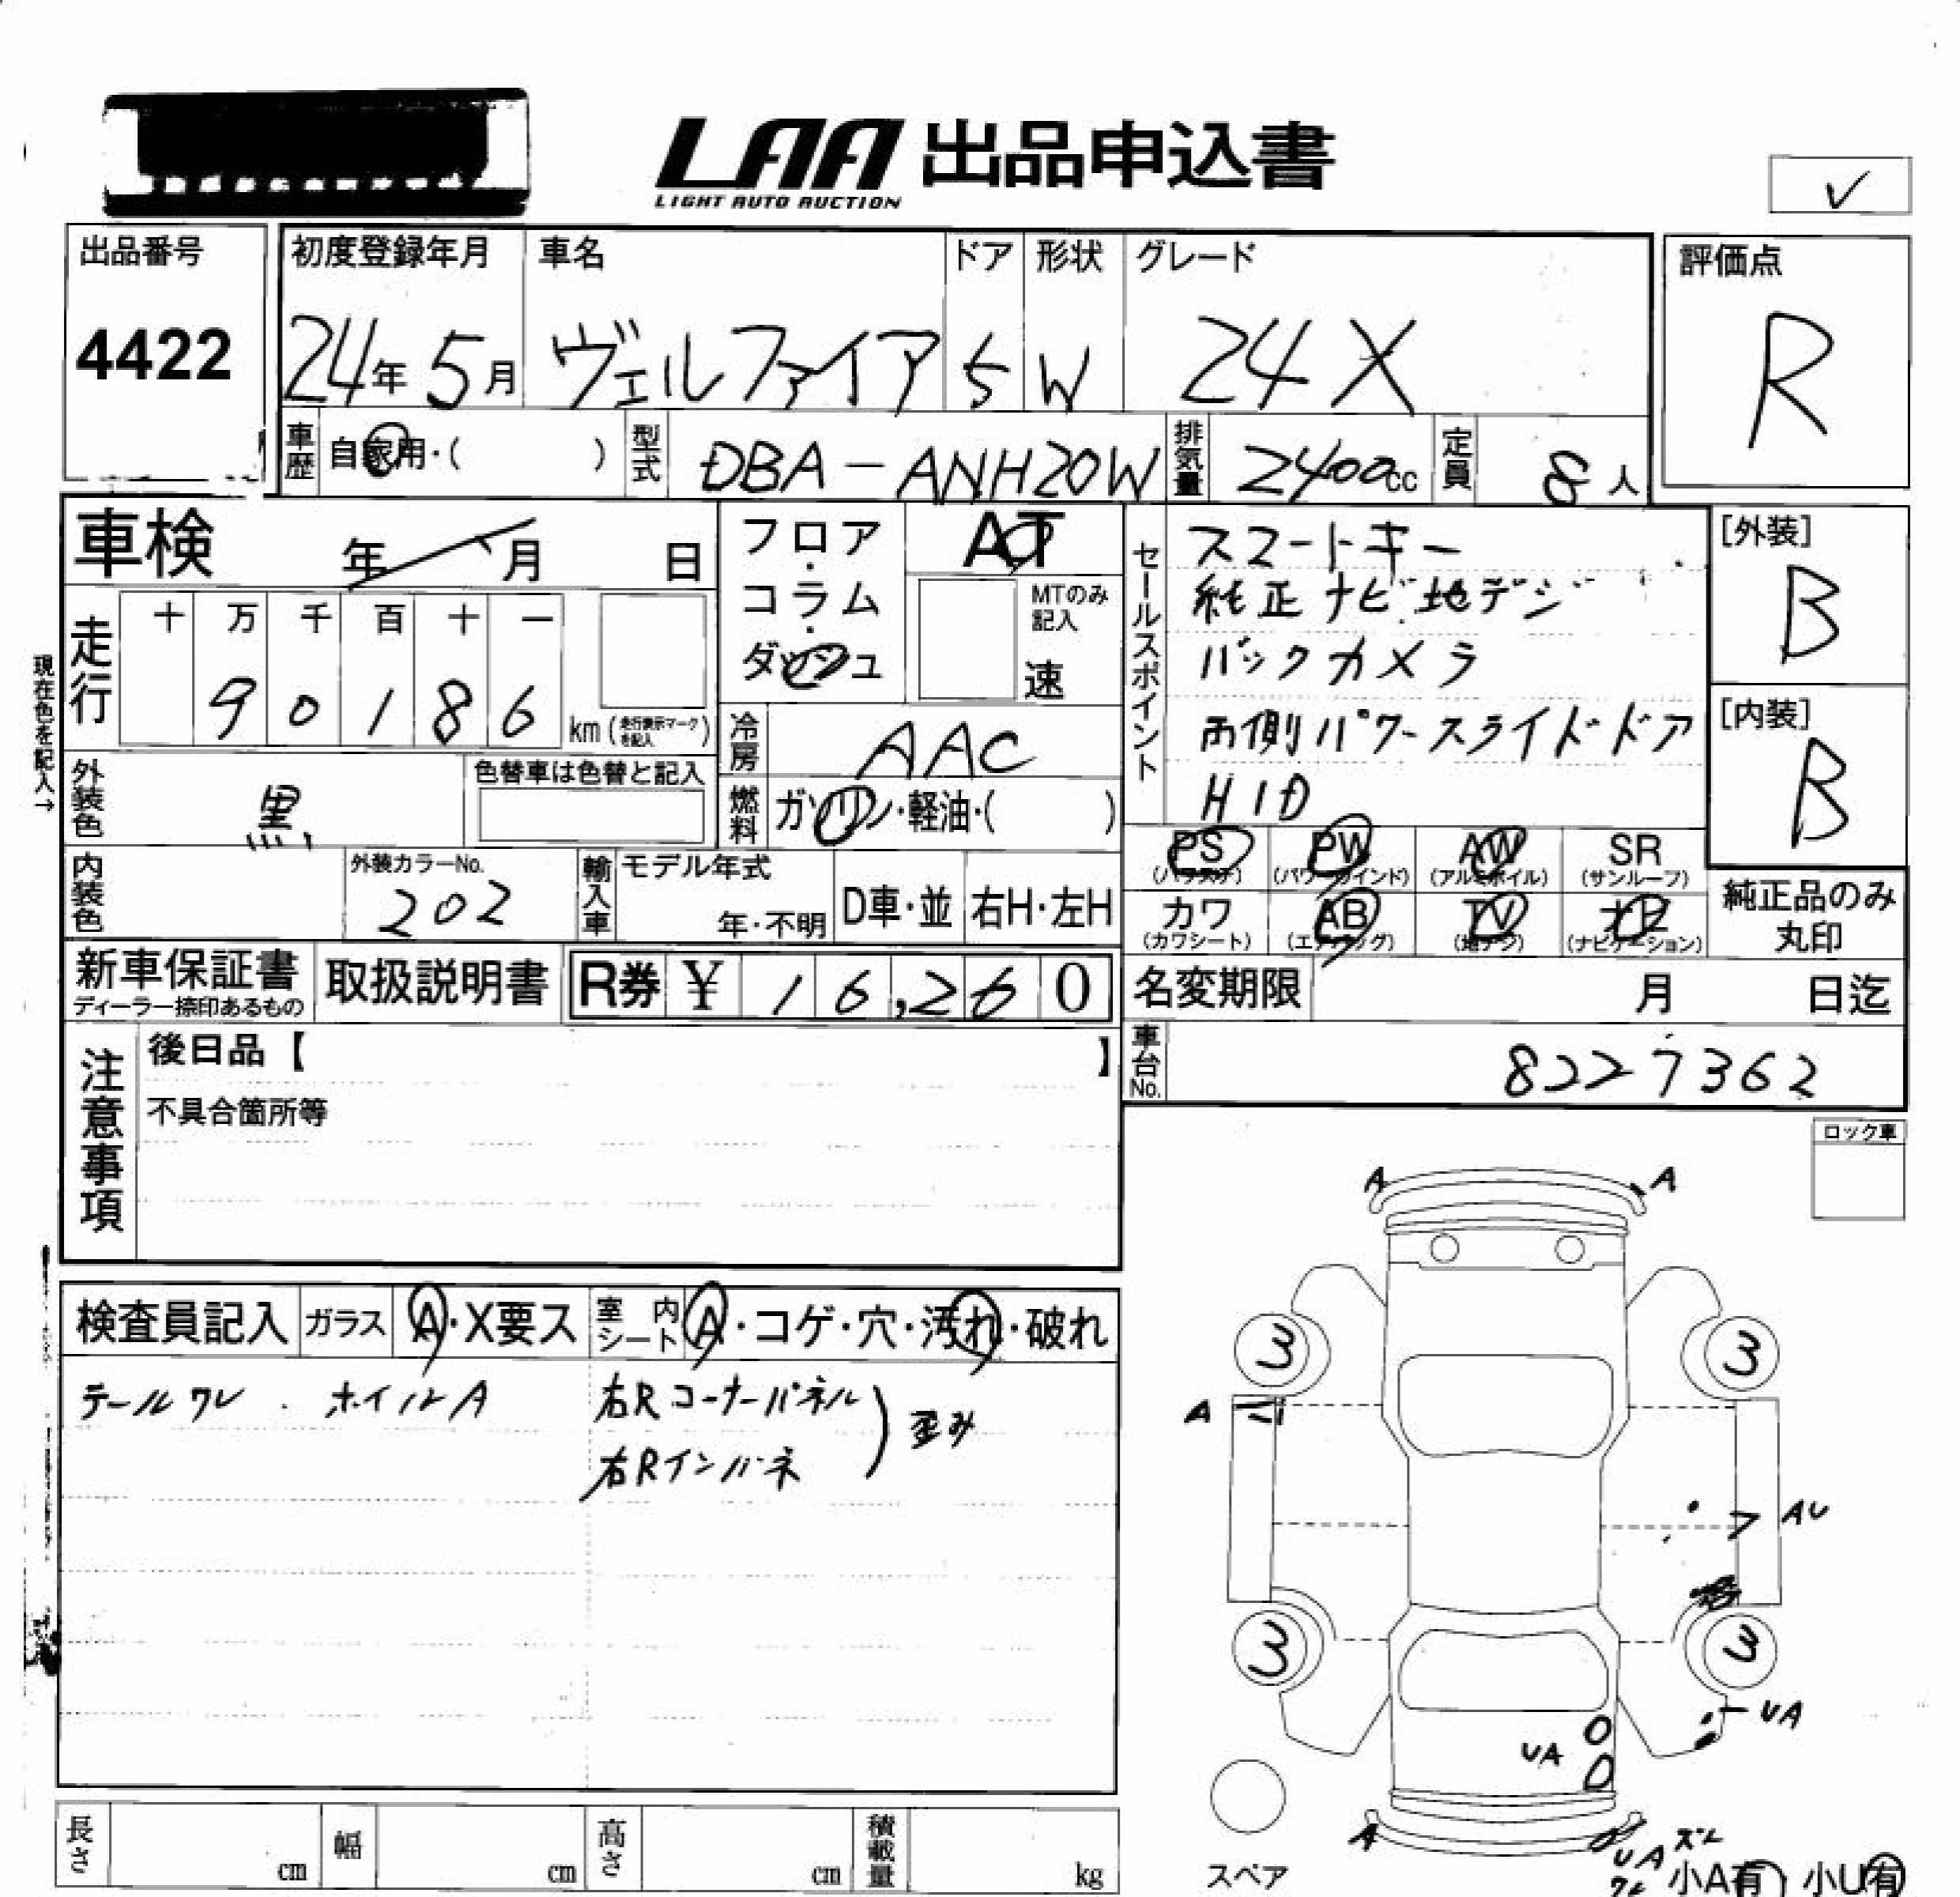 LAA 出品申込書
LIGHT AUTO AUCTION
✓
出品番号
4422
初度登録年月
24年 5月
車名
ヴェルファイア
ドア
5
形状
W
グレード
24X
評価点
R
車歴
自家用・( )
型式
DBA-ANH20W
排気量
2400cc
定員
8人
車検 年 月 日
フロア・コラム・ダッシュ
AT
MTのみ記入
速
セールスポイント
スマートキー
純正ナビ地デジ
バックカメラ
両側パワースライドドア
HID
[外装]
B
[内装]
B
現在色を記入→
走行
十 万 千 百 十 一
9 0 1 8 6
km(走行表示マークを記入)
冷房
AAC
外装色
黒
色替車は色替と記入
燃料
ガソリン・軽油・( )
内装色
外装カラーNo.
202
輸入車
モデル年式
年・不明
D車・並
右H・左H
PS (パワステ)
PW (パワーウインド)
AW (アルミホイル)
SR (サンルーフ)
カワ (カワシート)
AB (エアバッグ)
TV (地デジ)
ナビ (ナビゲーション)
純正品のみ
丸印
新車保証書
ディーラー捺印あるもの
取扱説明書
R券 ¥ 16,260
名変期限 月 日迄
車台No.
8227362
注意事項
後日品【 】
不具合箇所等
ロック車
検査員記入
ガラス
A・X要ス
室内シート
A・コゲ・穴・汚れ・破れ
テールワレ . ホイルA
右Rコーナーパネル
右Rインパネ
) 歪み
A A
3 3
A
AU
3 3
UA
UA
A
UA ズレ
ワレ
スペア
小A有 小U有
長さ cm
幅 cm
高さ cm
積載量 kg